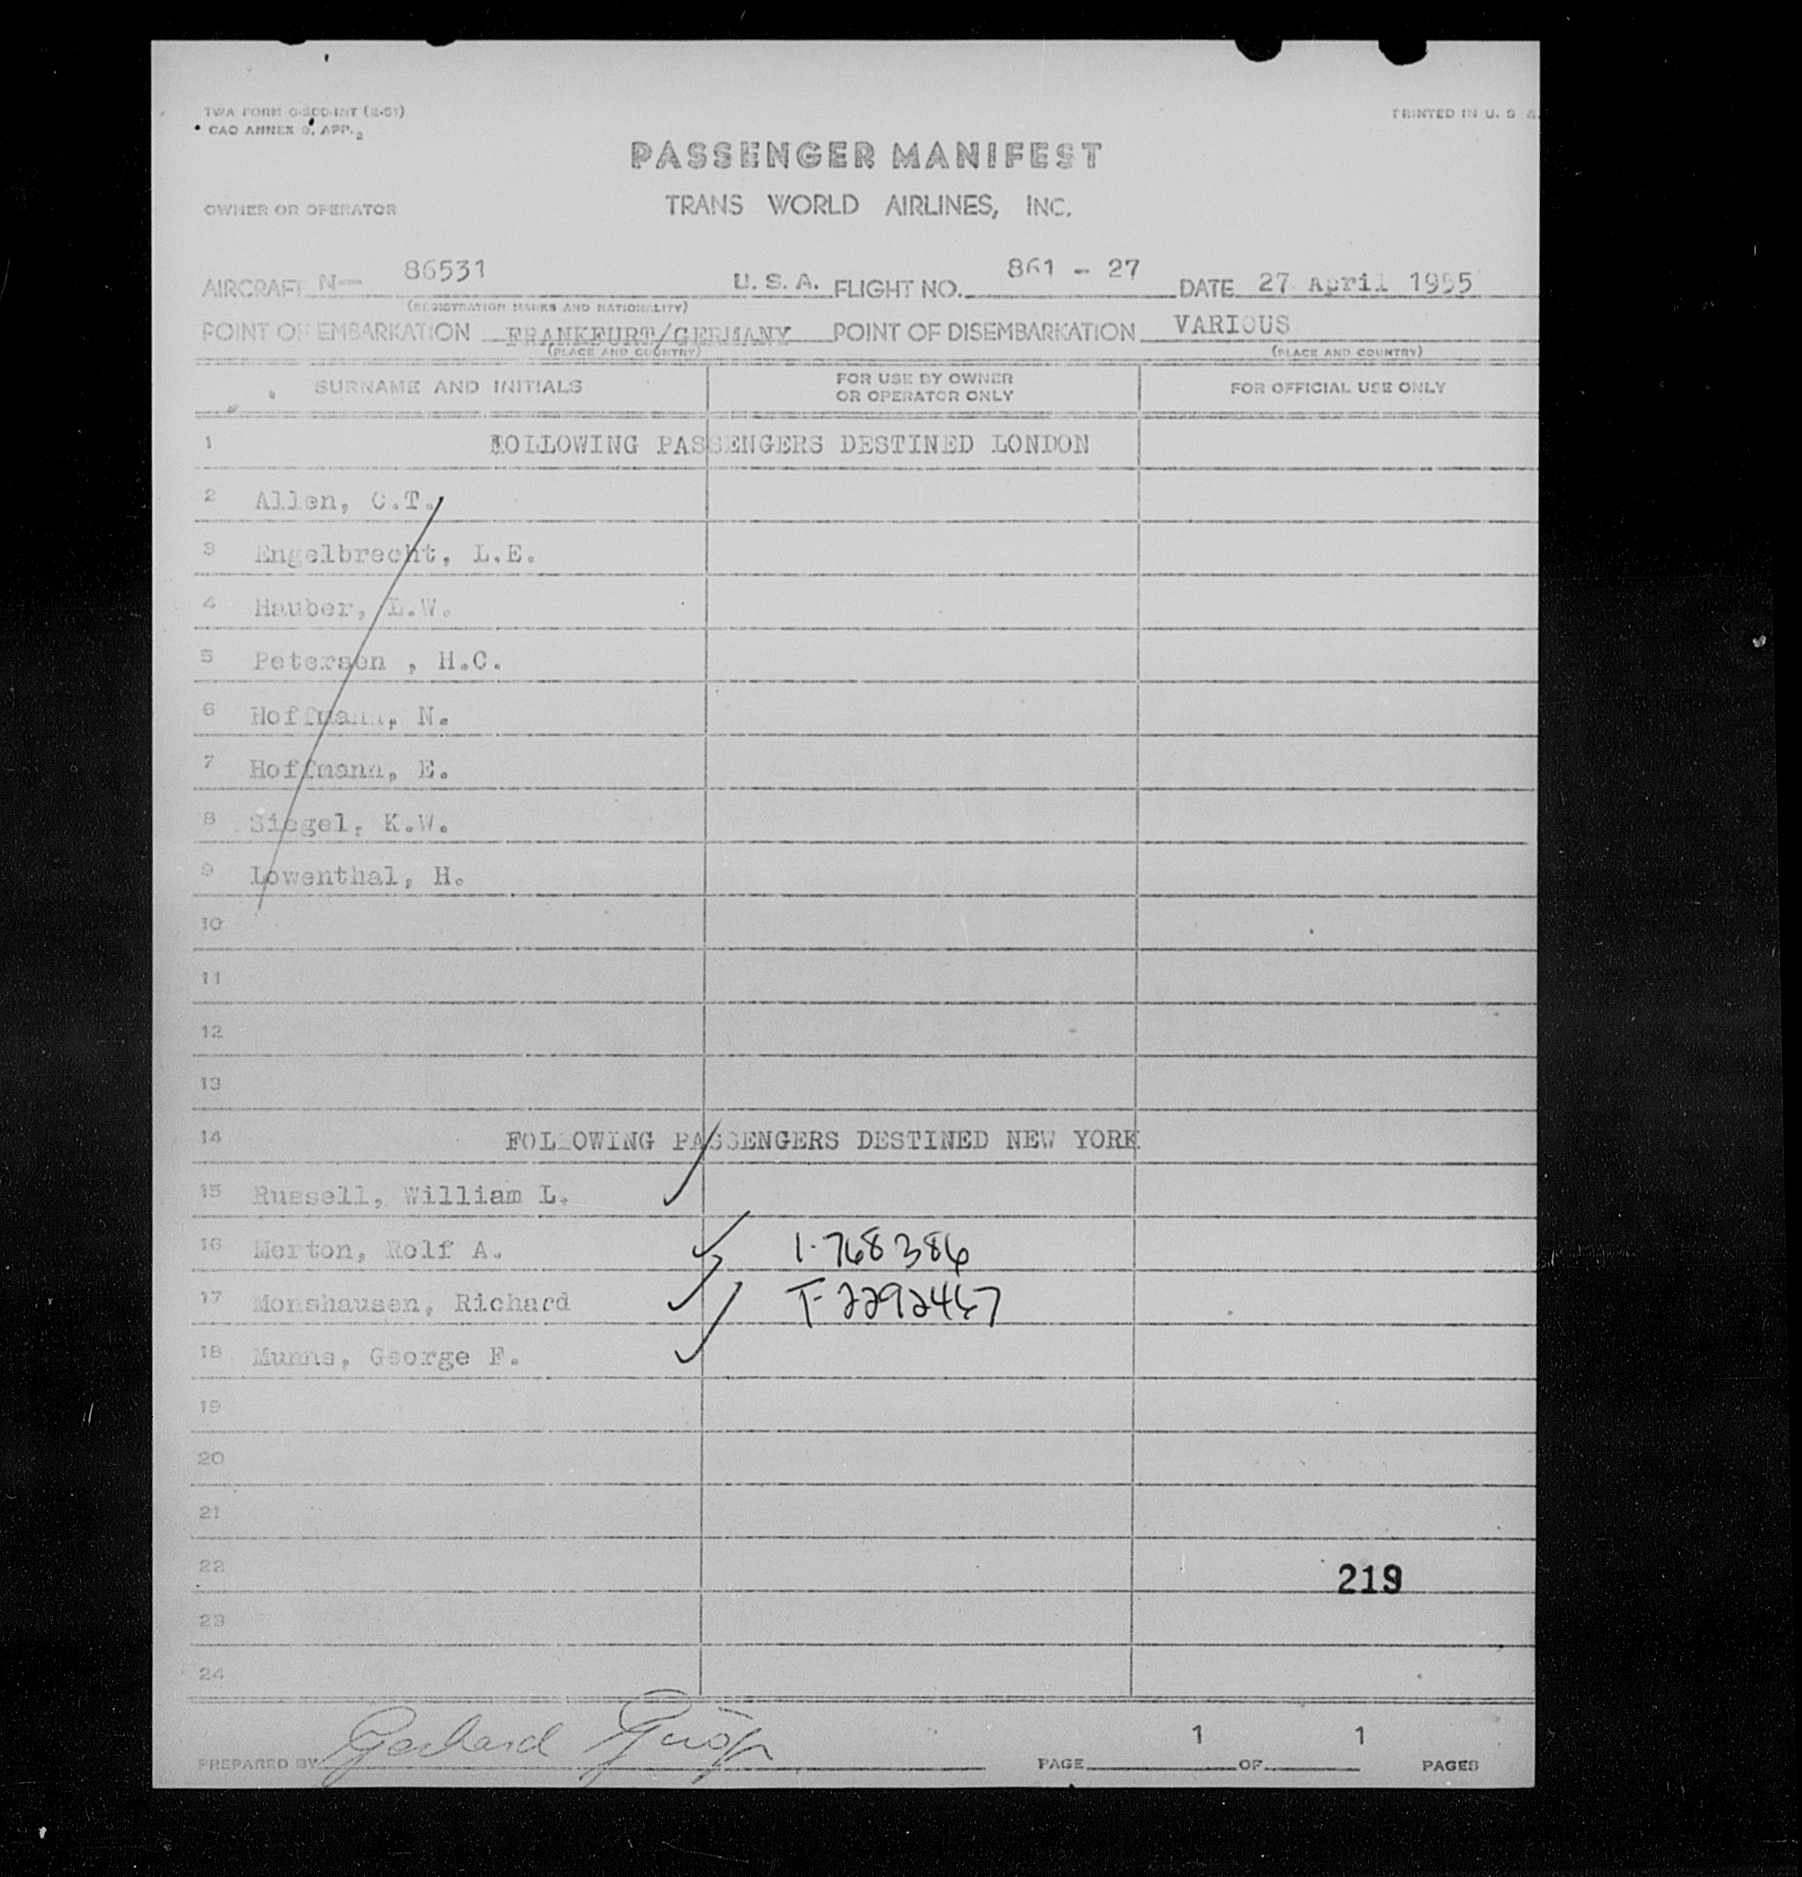 TWA FORM O-300-INT (2-51)
PRINTED IN U. S. A.
CAO ANNEX 9, APP. 2
PASSENGER MANIFEST
OWNER OR OPERATOR TRANS WORLD AIRLINES, INC.
AIRCRAFT N— 86531 U. S. A. FLIGHT NO. 861 - 27 DATE 27 April 1955
(REGISTRATION MARKS AND NATIONALITY)
POINT OF EMBARKATION FRANKFURT/GERMANY POINT OF DISEMBARKATION VARIOUS
(PLACE AND COUNTRY) (PLACE AND COUNTRY)
SURNAME AND INITIALS FOR USE BY OWNER OR OPERATOR ONLY FOR OFFICIAL USE ONLY
1 FOLLOWING PASSENGERS DESTINED LONDON
2 Allen, C.T.
3 Engelbrecht, L.E.
4 Hauber, L.W.
5 Petersen , H.C.
6 Hoffmann, N.
7 Hoffmann, E.
8 Siegel, K.W.
9 Lowenthal, H.
10
11
12
13
14 FOLLOWING PASSENGERS DESTINED NEW YORK
15 Russell, William L.
16 Merton, Rolf A. 1-768386
17 Monshausen, Richard T-2292467
18 Munns, George F.
19
20
21
22 219
23
24
PREPARED BY Gerhard PAGE 1 OF 1 PAGES